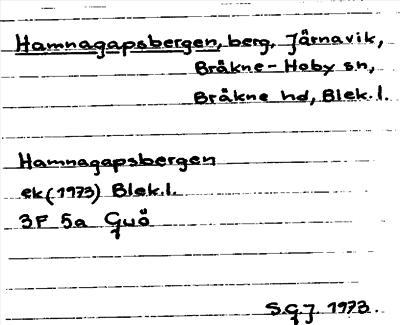 Hamnagapsbergen, berg, Järnavik,
Bräkne-Hoby sn,
Bräkne hd, Blek.l.
Hamnagapsbergen
ek (1973) Blek.l.
3F 5a Guö
S.G.J. 1973.